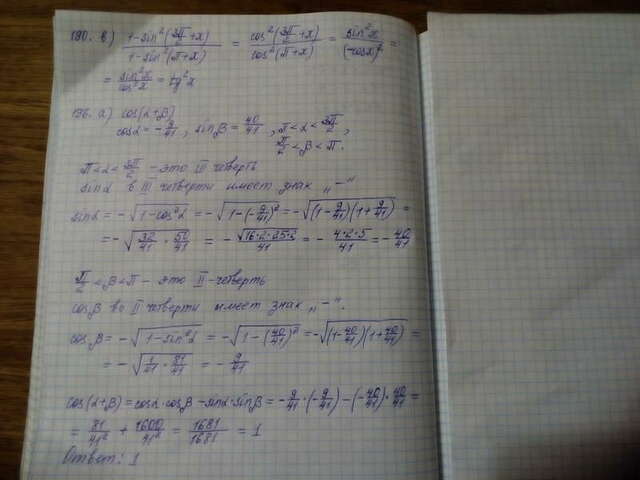 190. в) (1-sin²(3π/2+x))/(1-sin²(π+x)) = cos²(3π/2+x)/cos²(π+x) = sin²x/(-cosx)² =
= sin²x/cos²x = tg²x
196. а) cos(α+β)
cosα = -9/41, sinβ = 40/41, π<α<3π/2,
π/2<β<π.
π<α<3π/2 - это III четверть
sinα в III четверти имеет знак „-“
sinα = -√(1-cos²α) = -√(1-(-9/41)²) = -√((1-9/41)(1+9/41)) =
= -√(32/41·50/41) = -√(16·2·25·2)/41 = -4·2·5/41 = -40/41
π/2<β<π - это II-четверть
cosβ во II четверти имеет знак „-“.
cosβ = -√(1-sin²α) = -√(1-(40/41)²) = -√((1-40/41)(1+40/41)) =
= -√(1/41·81/41) = -9/41
cos(α+β) = cosα·cosβ - sinα·sinβ = -9/41·(-9/41)-(-40/41)·40/41 =
= 81/41² + 1600/41² = 1681/1681 = 1
Ответ: 1